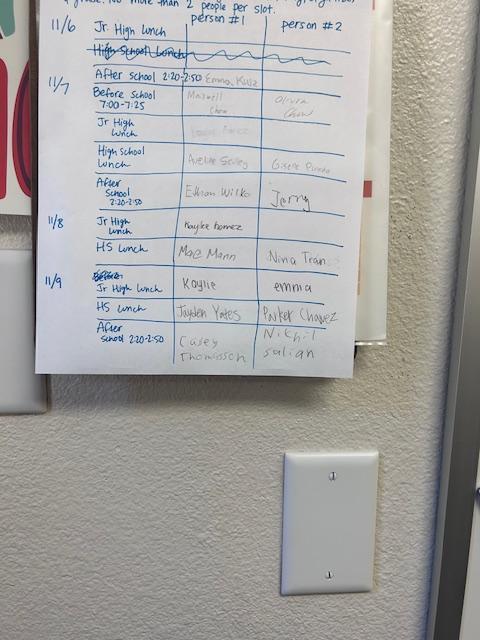 No more than 2 people per slot.
person #1 person #2
11/6 Jr High lunch
High School Lunch
After school 2:20-2:50 Emma
11/7 Before School 7:00-7:25 Maxwell Chen Olivia
Jr High lunch
High school Lunch Aveline Gisele
After School 2:20-2:50 Ethan Wilko Jerry
11/8 Jr High lunch Kaylee Gomez
HS lunch Mae Mann Nina Tran
11/9 Before
Jr High lunch Kaylie emma
HS lunch Jayden Yates Parker Chavez
After school 2:20-2:50 Casey Thomasson Nikhil salian